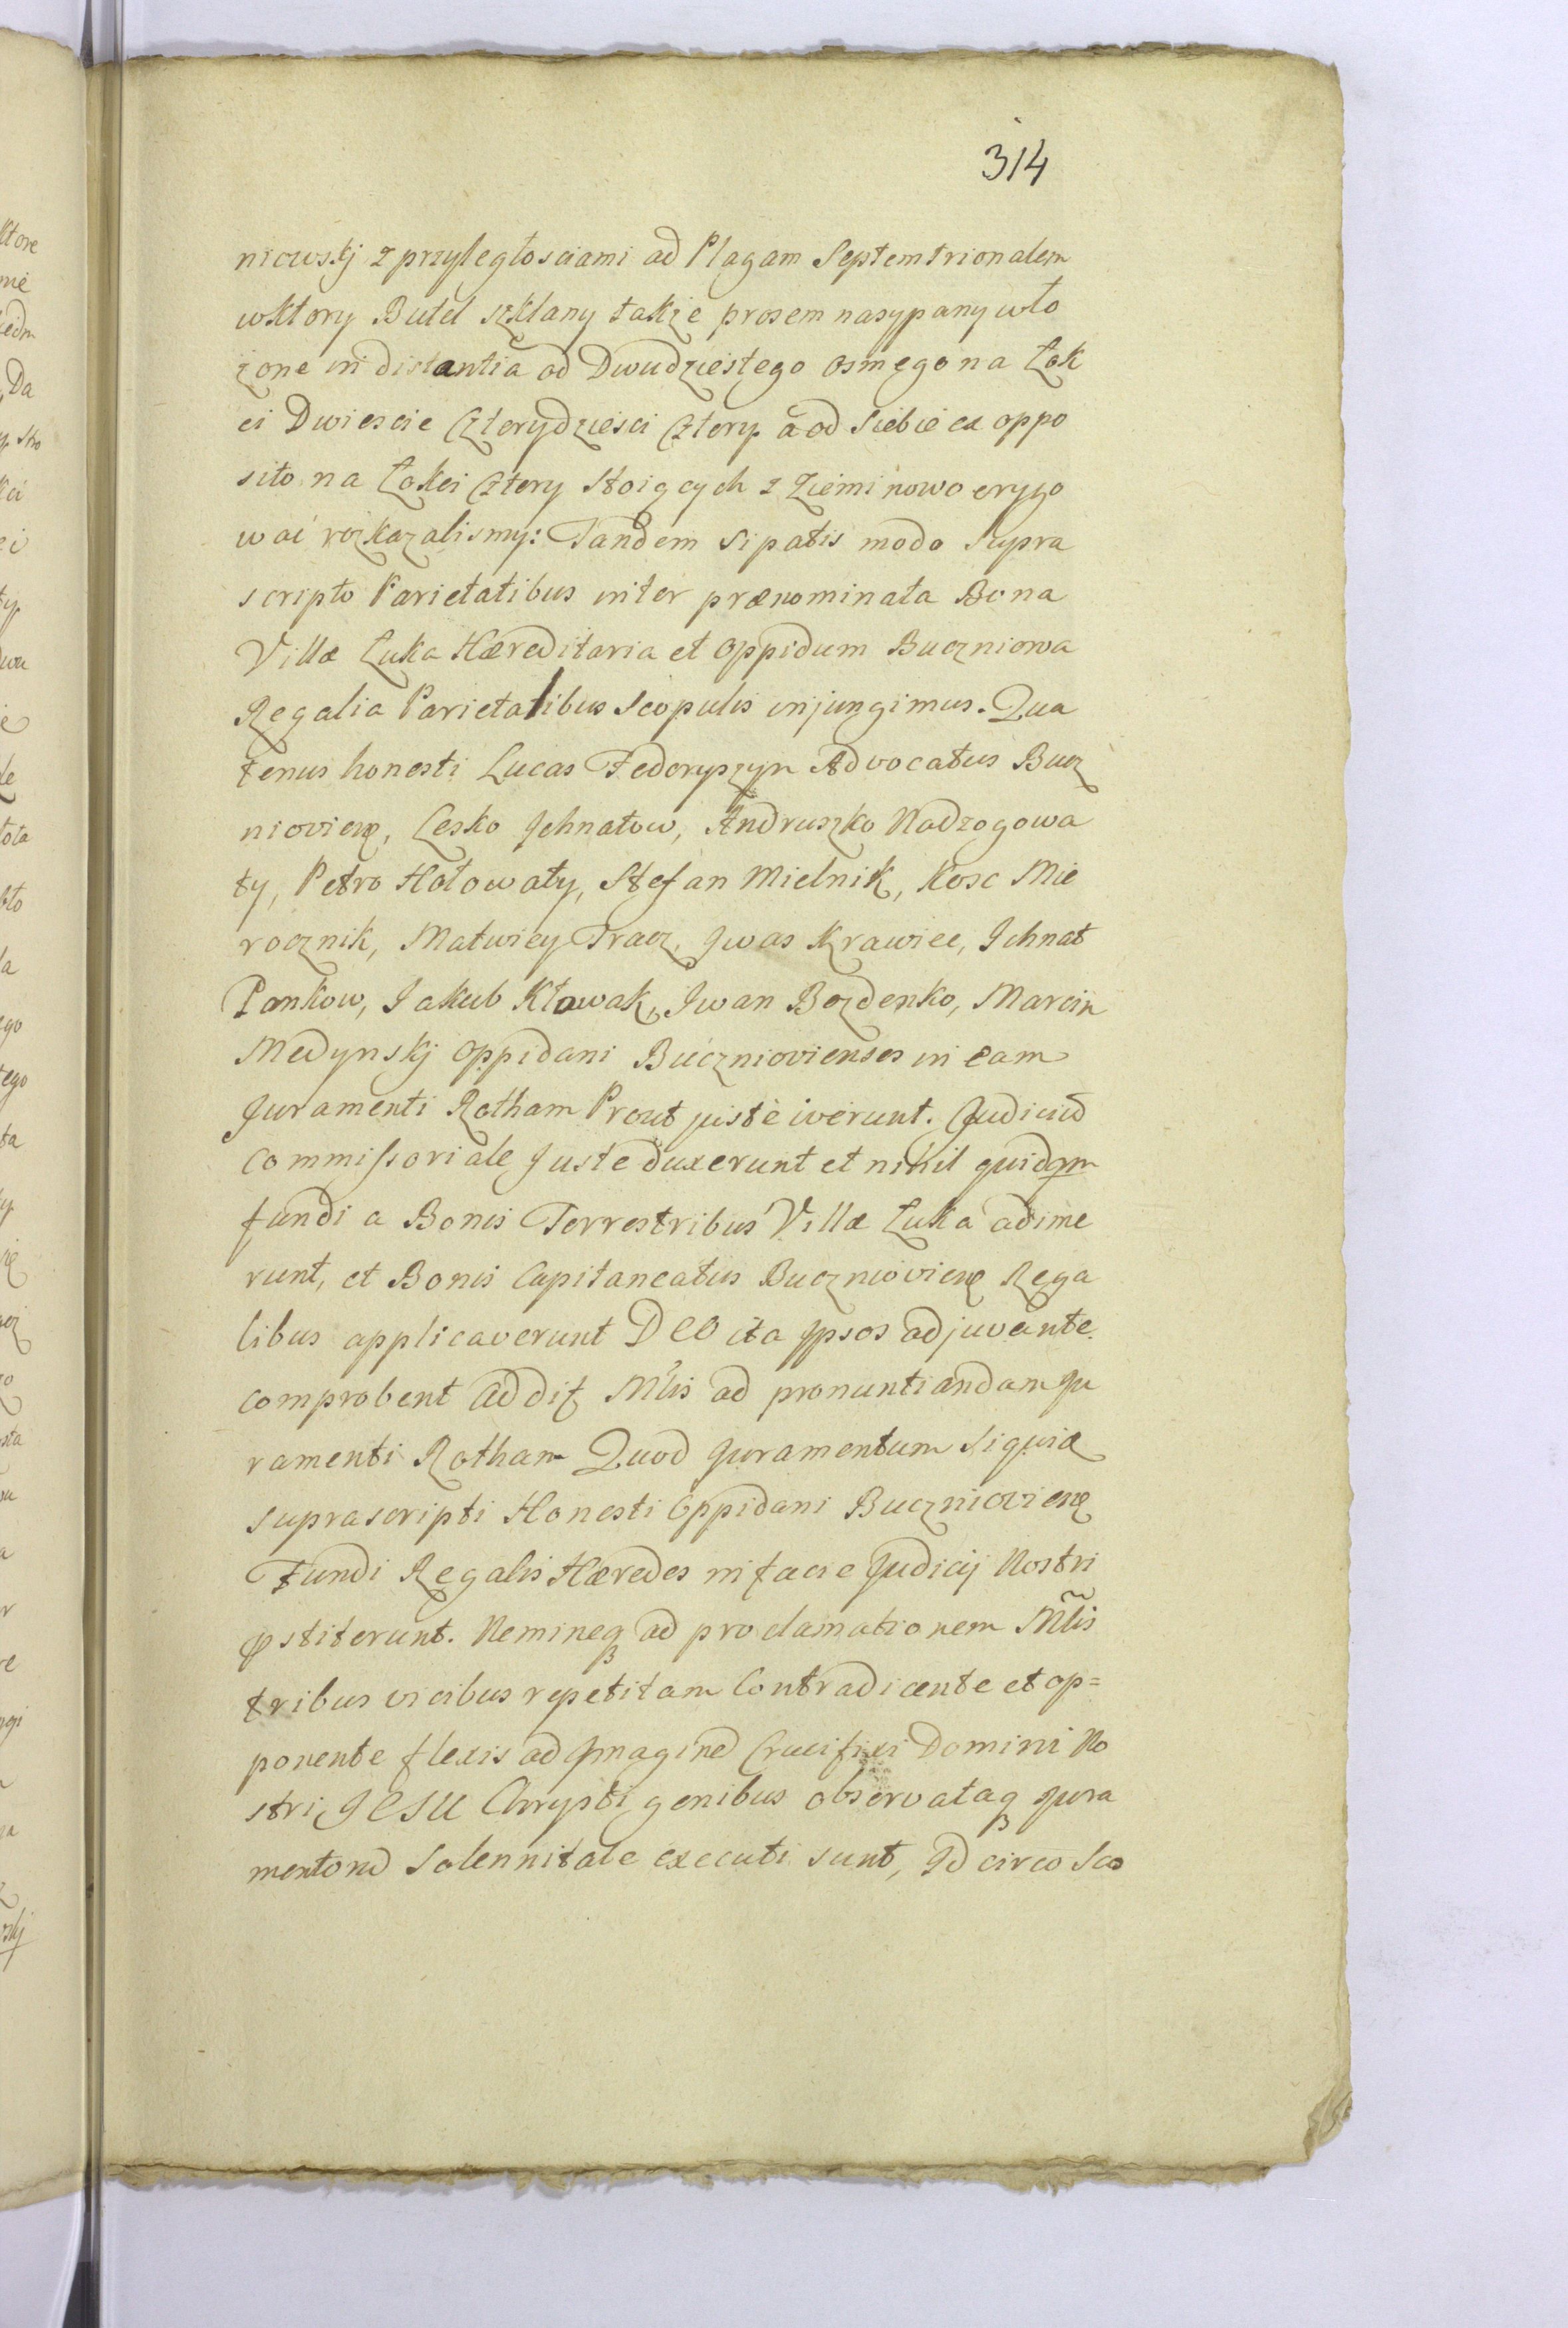 314
niowskj z przyległosciami ad Plagam Septemtrionalem
wktory Butel szklany takze prosem nasypany wło
zone in distantia od Dwudziestego osmego na Łok
ci Dwiescie Czterydziesci Cztery a od Siebie ex oppo
sito na Łokci Cztery Stoiących z Ziemi nowo erygo
wać roskazalismy: Tandem sipatis modo Supra
scripto Parietatibus inter prænominata Bona
Villæ Łuka Hæreditaria et oppidum Buczniowa
Regalia Parietalibus Scopulis injungimus. Qua
tenus honesti Lucas Fedoryszyn Advocatus Bucz
niovienẹ, Lesko Jchnatow, Andruszko Nadzogowa
ty, Petro Hołowaty, Stefan Mielnik, Kosc Mie
rocznik, Matwiey Tracz, Jwas Krawiec, Ichnat
Pankow, Jakub Kłowak, Jwan Bozdenko, Marcin
Medynskj oppidani Buczniovienses in eam
Juramenti Rotham Prout juste iverunt. Judiciũ
Commissoriale Juste duxerunt et nihil quidqm
fundi a Bonis Terrestribus Villæ Łuka adime
runt, et Bonis Capitaneatus Buczniovienẹ Rega
libus applicaverunt DEO ita Jpsos adjuvante
comprobent Mlis ad pronuntiandam Ju
ramenti Rotham Quod Juramentum Siquidẹ
suprascripti Honesti Oppidani Buczniovienẹ
Fundi Regalis Hæredes in facie Judicij Nostri
pstiterunt. Nemineq ad proclamationem Mlis
tribus vicibus repetitam Contradicente et op=
ponente flexis ad Jmaginẽ Crucifixi Domini No
stri JESU Chrysti genibus observataq Jura
mentorũ Solennitate executi sunt, Jd circo Sco